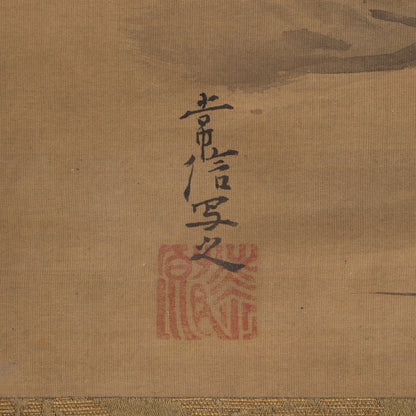 常信写之